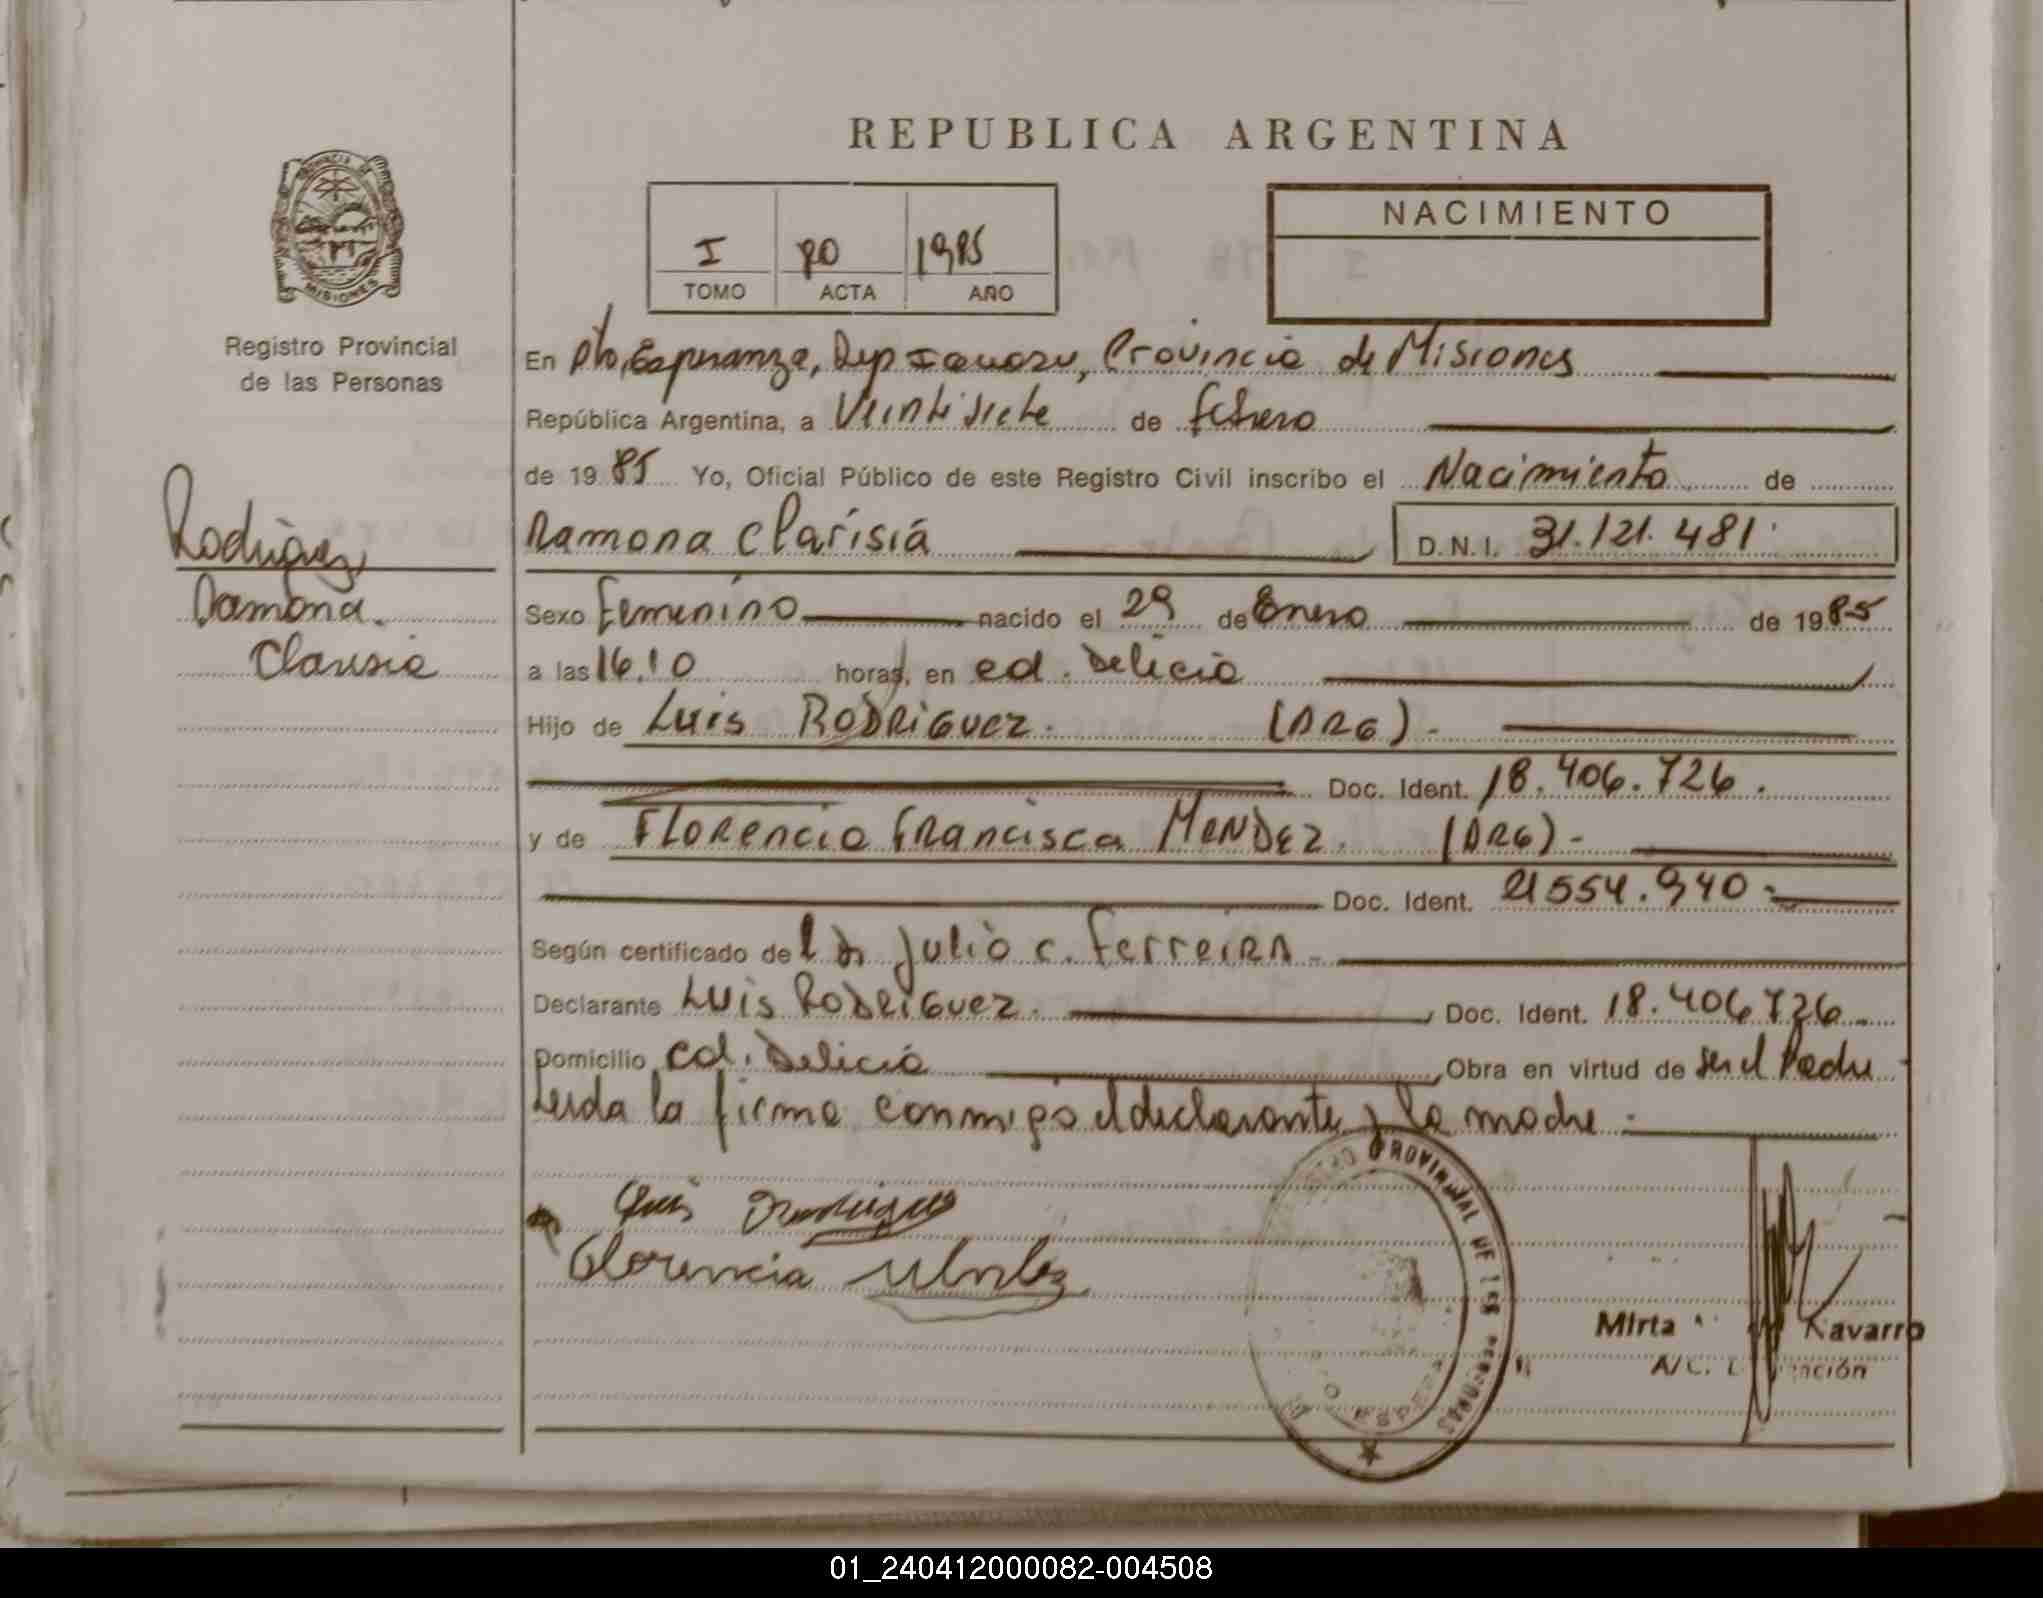 REPUBLICA ARGENTINA
PROVINCIA DE
MISIONES
Registro Provincial
de las Personas
I 80 1985
TOMO ACTA AÑO
NACIMIENTO
En Pto, Esperanza, Dep Iguazu, Provincia de Misiones
República Argentina, a Veintisiete de febrero
de 1985 Yo, Oficial Público de este Registro Civil inscribo el Nacimiento de
Ramona Clarisia D.N.I. 31.121.481
Rodriguez
Ramona
Clarisia
Sexo Femenino nacido el 29 de Enero de 1985
a las 16.10 horas, en col. Delicia
Hijo de Luis RODRIGUEZ. (ARG).-
Doc. Ident. 18.406.726.
y de FLORENCIA FRANCISCA MENDEZ. (ARG)-
Doc. Ident. 21554.940-
Según certificado del Dr Julio C. Ferreira-
Declarante Luis RODRIGUEZ. Doc. Ident. 18.406726-
Domicilio col. Delicia, Obra en virtud de ser el Padre
Leida la firma conmigo el declarante y la madre.-
Luis Rodriguez
Florencia Mendez
PROVINCIAL DE LAS PERSONAS
Mirta Navarro
A/C.
01_240412000082-004508